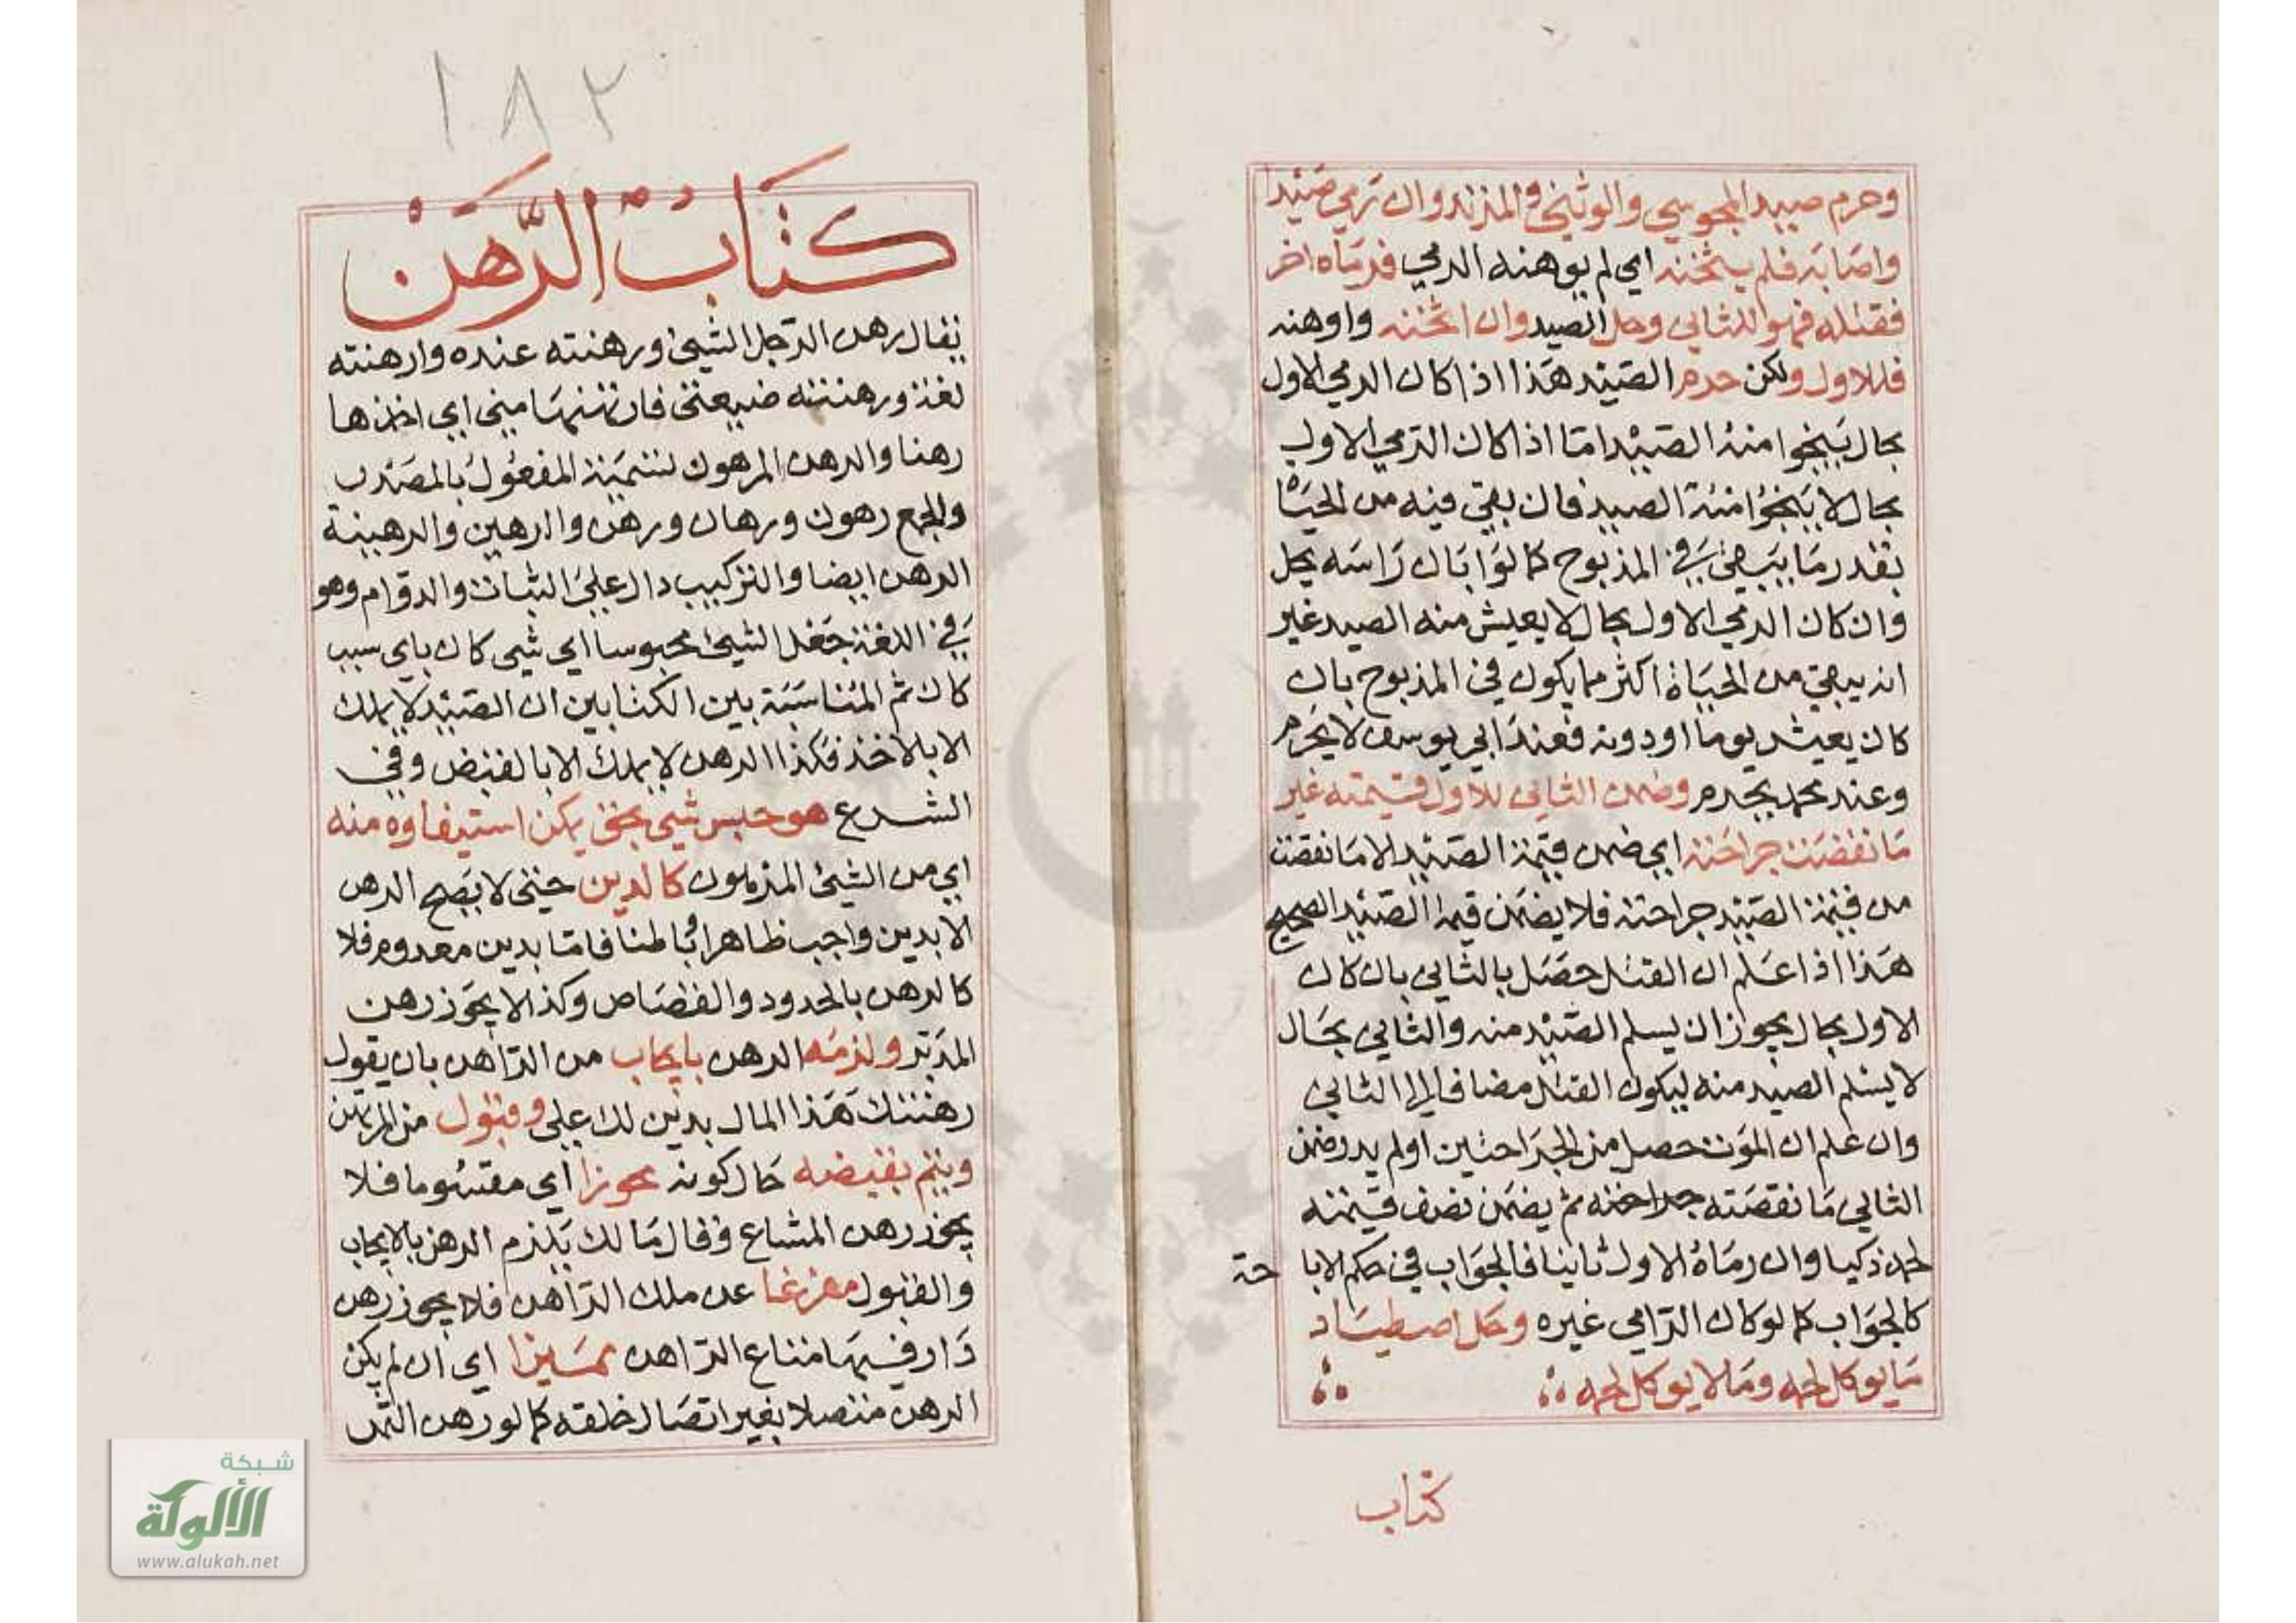 وحرم صيد المجوسي والوثني والمرتد وان رمي صيدا
واصابه فلم يثخنه اي لم يوهنه الرمي فرماه اخر
فقتله فهو للثاني وحل الصيد وان اثخنه واوهنه
فللاول ولكن حرم الصيد هذا اذا كان الرمي الاول
بحال ينجوا منه الصيد امّا اذا كان الرّمي الاول
بحال لا ينجوا منه الصيد فان بقي فيه من الحياة
بقدر ما يبقى في المذبوح كما لو ابان راسه يحل
وان كان الرمي الاول بحال لا يعيش منه الصيد غير
انه يبقي من الحياة اكثر مما يكون في المذبوح بان
كان يعيش يوما او دونه فعند ابي يوسف لا يحرم
وعند محمد يحرم وضمن الثاني للاول قيمته غير
ما نقصت جراحته اي ضمن قيمة الصيد الا ما نقصت
من قيمة الصيد جراحته فلا يضمن قيمة الصيد الصحيح
هذا اذا علم ان القتل حصل بالثاني بان كان
الاول بحال يجوز ان يسلم الصيد منه والثاني بحال
لا يسلم الصيد منه ليكون القتل مضافا الى الثاني
وان علم ان الموت حصل من الجراحتين او لم يدر ضمن
الثاني ما نقصته جراحته ثم يضمن نصف قيمته
لحمه ذكيا وان رماه الاول ثانيا فالجواب في حكم الابا حة
كالجواب كما لو كان الرّامي غيره وحل اصطياد
ما يوكل لحمه وما لا يوكل لحمه
كتاب
١٨٢
كتاب الرّهن
يقال رهن الرّجل الشيئ ورهنته عنده وارهنته
لغة ورهنته ضيعتي فارتهنها مني اي اخذها
رهنا والرهن المرهون تسمية المفعول بالمصدر
والجمع رهون ورهان ورهن والرهين والرهينة
الرهن ايضا والتركيب دال علي الثبات والدوام وهو
في اللغة جعل الشيئ محبوسا اي شي كان باي سبب
كان ثم المناسبة بين الكتابين ان الصيد لا يملك
الا بالاخذ فكذا الرهن لا يملك الا بالقبض وفي
الشرع هو حبس شي بحق يمكن استيفاوه منه
اي من الشيئ المرهون كالدين حتي لا يصح الرهن
الا بدين واجب ظاهرا باطنا فامّا بدين معدوم فلا
كالرهن بالحدود والقصاص وكذا لا يجوز رهن
المدبّر ولزمه الرهن بايجاب من الرّاهن بان يقول
رهنتك هذا المال بدين لك علي وقبول من المرتهن
ويتم بقبضه حال كونه محوزا اي مقسوما فلا
يجوز رهن المشاع وقال مالك يلزم الرهن بالايجاب
والقبول مفرغا عن ملك الرّاهن فلا يجوز رهن
دار فيها متاع الرّاهن مميزا اي ان لم يكن
الرهن متصلا بغير اتصال خلقه كما لو رهن الثمر
شبكة
الألوكة
www.alukah.net